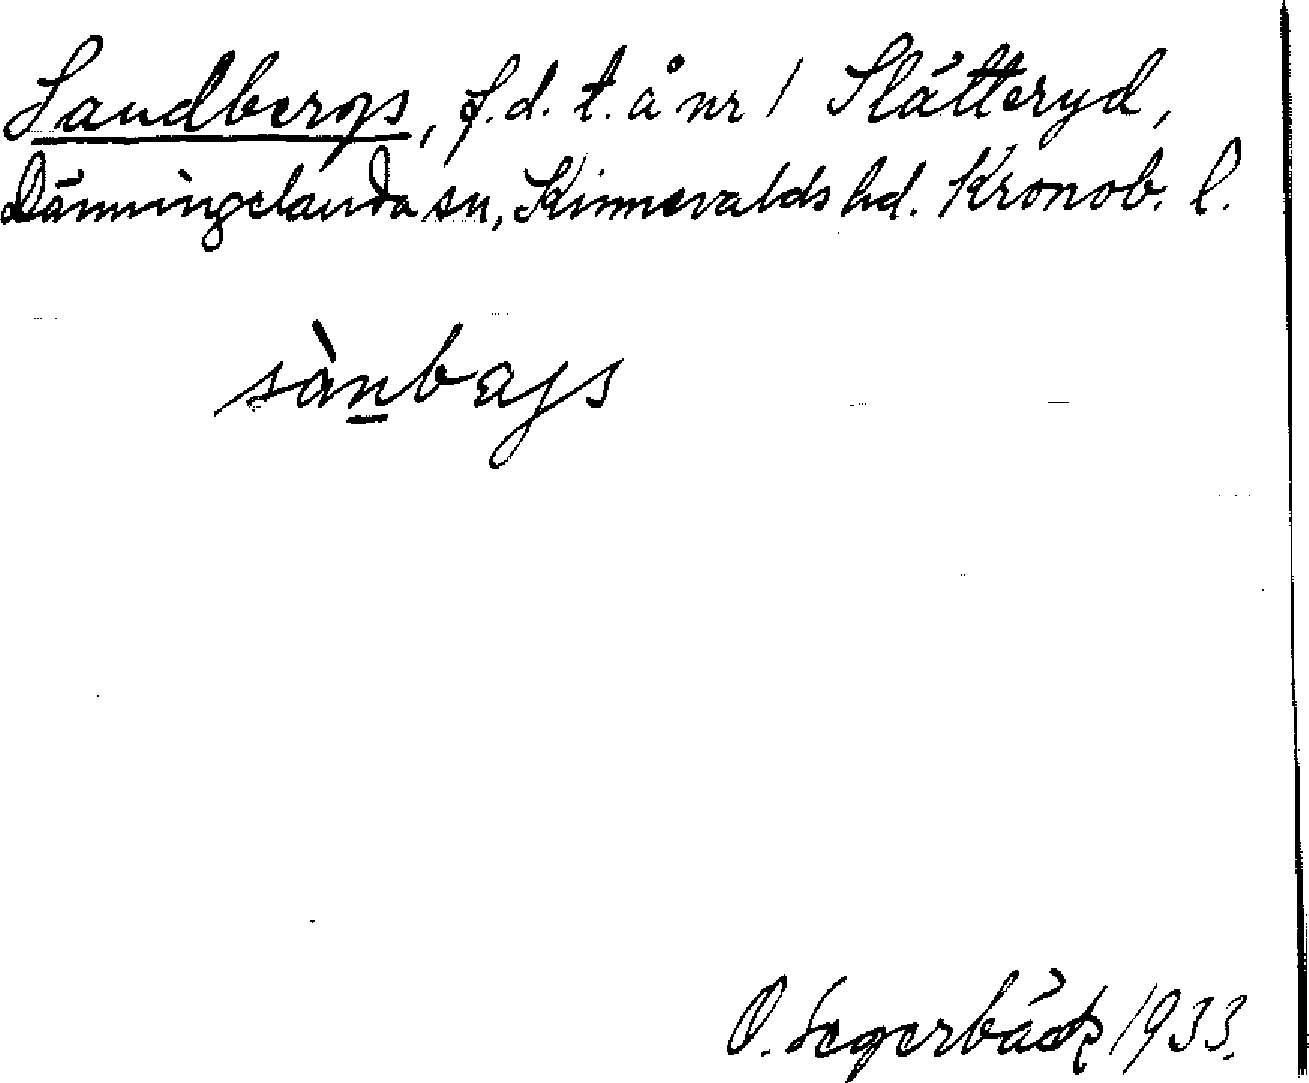 Sandbergs, f.d. t. å nr 1 Slätteryd,
Dänningelanda sn, Kinnevalds hd. Kronob. l.
sànbæjs
O. Segerbäck 1933.